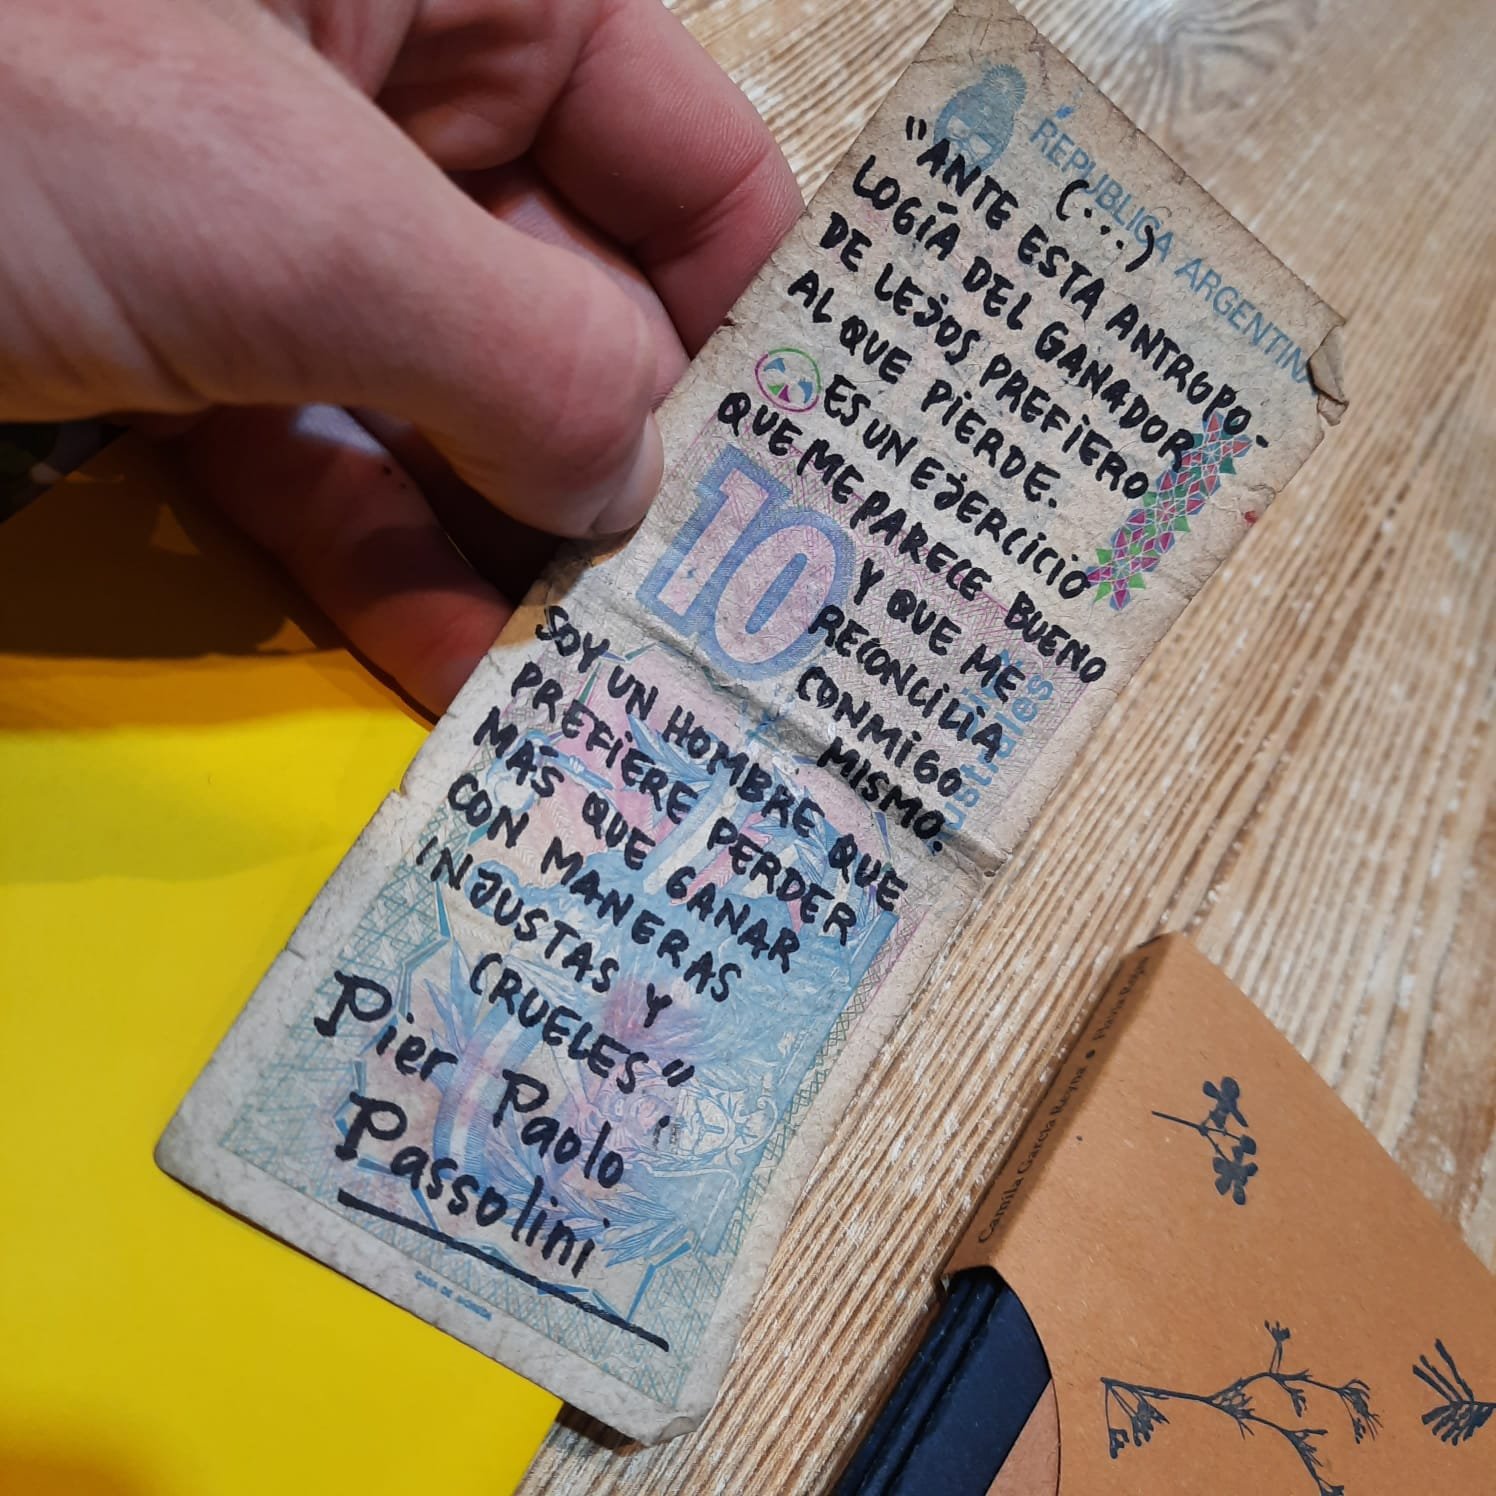 REPUBLICA ARGENTINA
(...)
"ANTE ESTA ANTROPO-
LOGÍA DEL GANADOR
DE LEJOS PREFIERO
AL QUE PIERDE.
ES UN EJERCICIO
QUE ME PARECE BUENO
Y QUE ME
RECONCILIA
CONMIGO
MISMO.
10
australes
SOY UN HOMBRE QUE
PREFIERE PERDER
MÁS QUE GANAR
CON MANERAS
INJUSTAS Y
CRUELES"
Pier Paolo
Passolini
CASA DE MONEDA
Camila García Reyna •